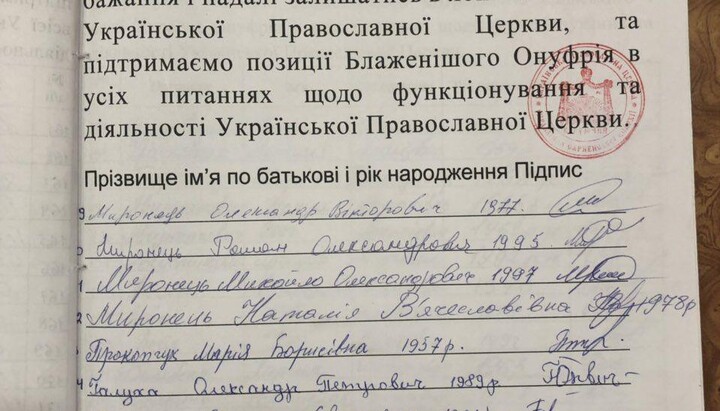 бажання і надалі залишатись в
Української Православної Церкви, та
підтримаємо позиції Блаженішого Онуфрія в
усіх питаннях щодо функціонування та
діяльності Української Православної Церкви.
Прізвище ім’я по батькові і рік народження Підпис
9 Миронець Олександр Вікторович 1977.
Миронець Роман Олександрович 1995
1 Миронець Михайло Олександрович 1997
2 Миронець Наталія В'ячеславівна 1978р
Прокопчук Марія Борисівна 1957р.
4 Галуха Олександр Петрович 1989р